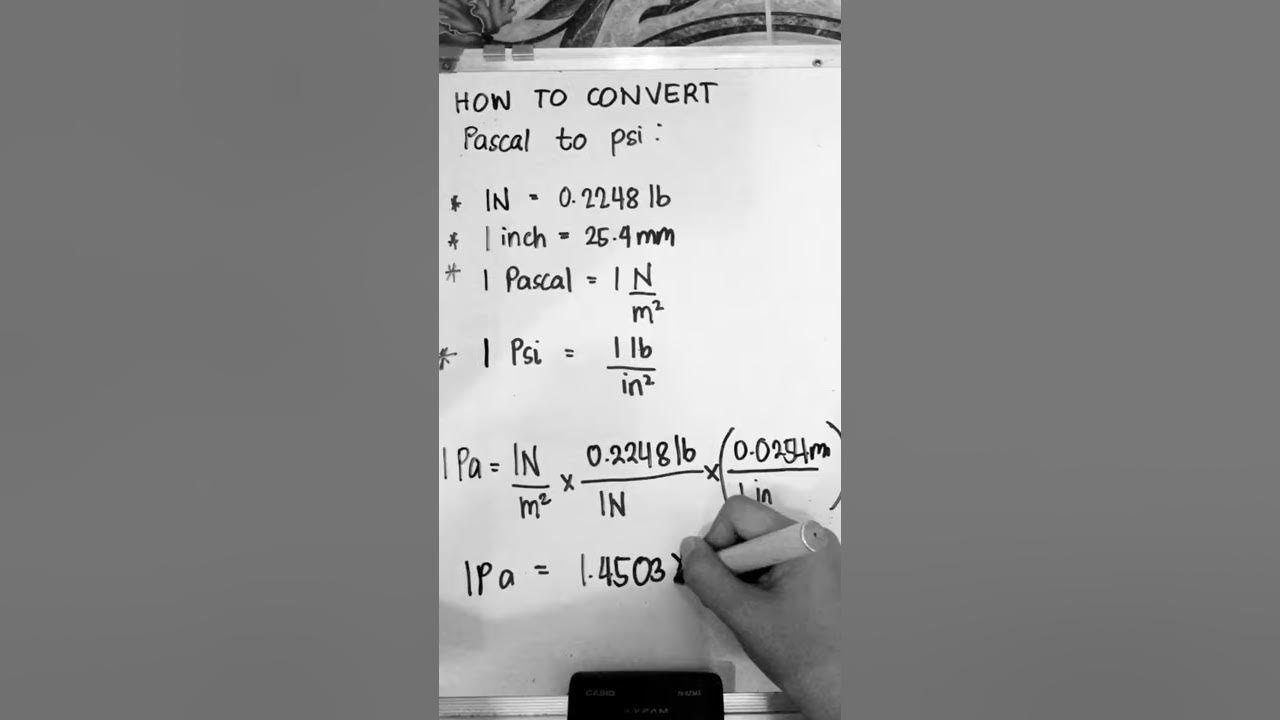 HOW TO CONVERT
Pascal to psi:
* 1N = 0.2248 lb
* 1 inch = 25.4mm
* 1 Pascal = 1 N
m²
* 1 Psi = 1 lb
in²
1 Pa = 1N × 0.2248 lb × (0.0254m)
m² 1N 1 in
1Pa = 1.4503 x
CASIO